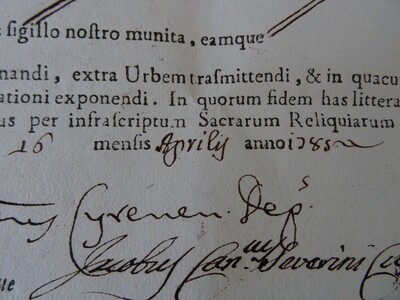 ſigillo noſtro munita, eamque
nandi, extra Urbem traſmittendi, & in quacu
ationi exponendi. In quorum fidem has littera
us per infraſcriptum Sacrarum Reliquiarum
16 menſis Aprilis anno 1785
Cyrenen. Dep.s
Jacobus Can.cus Severini Cu